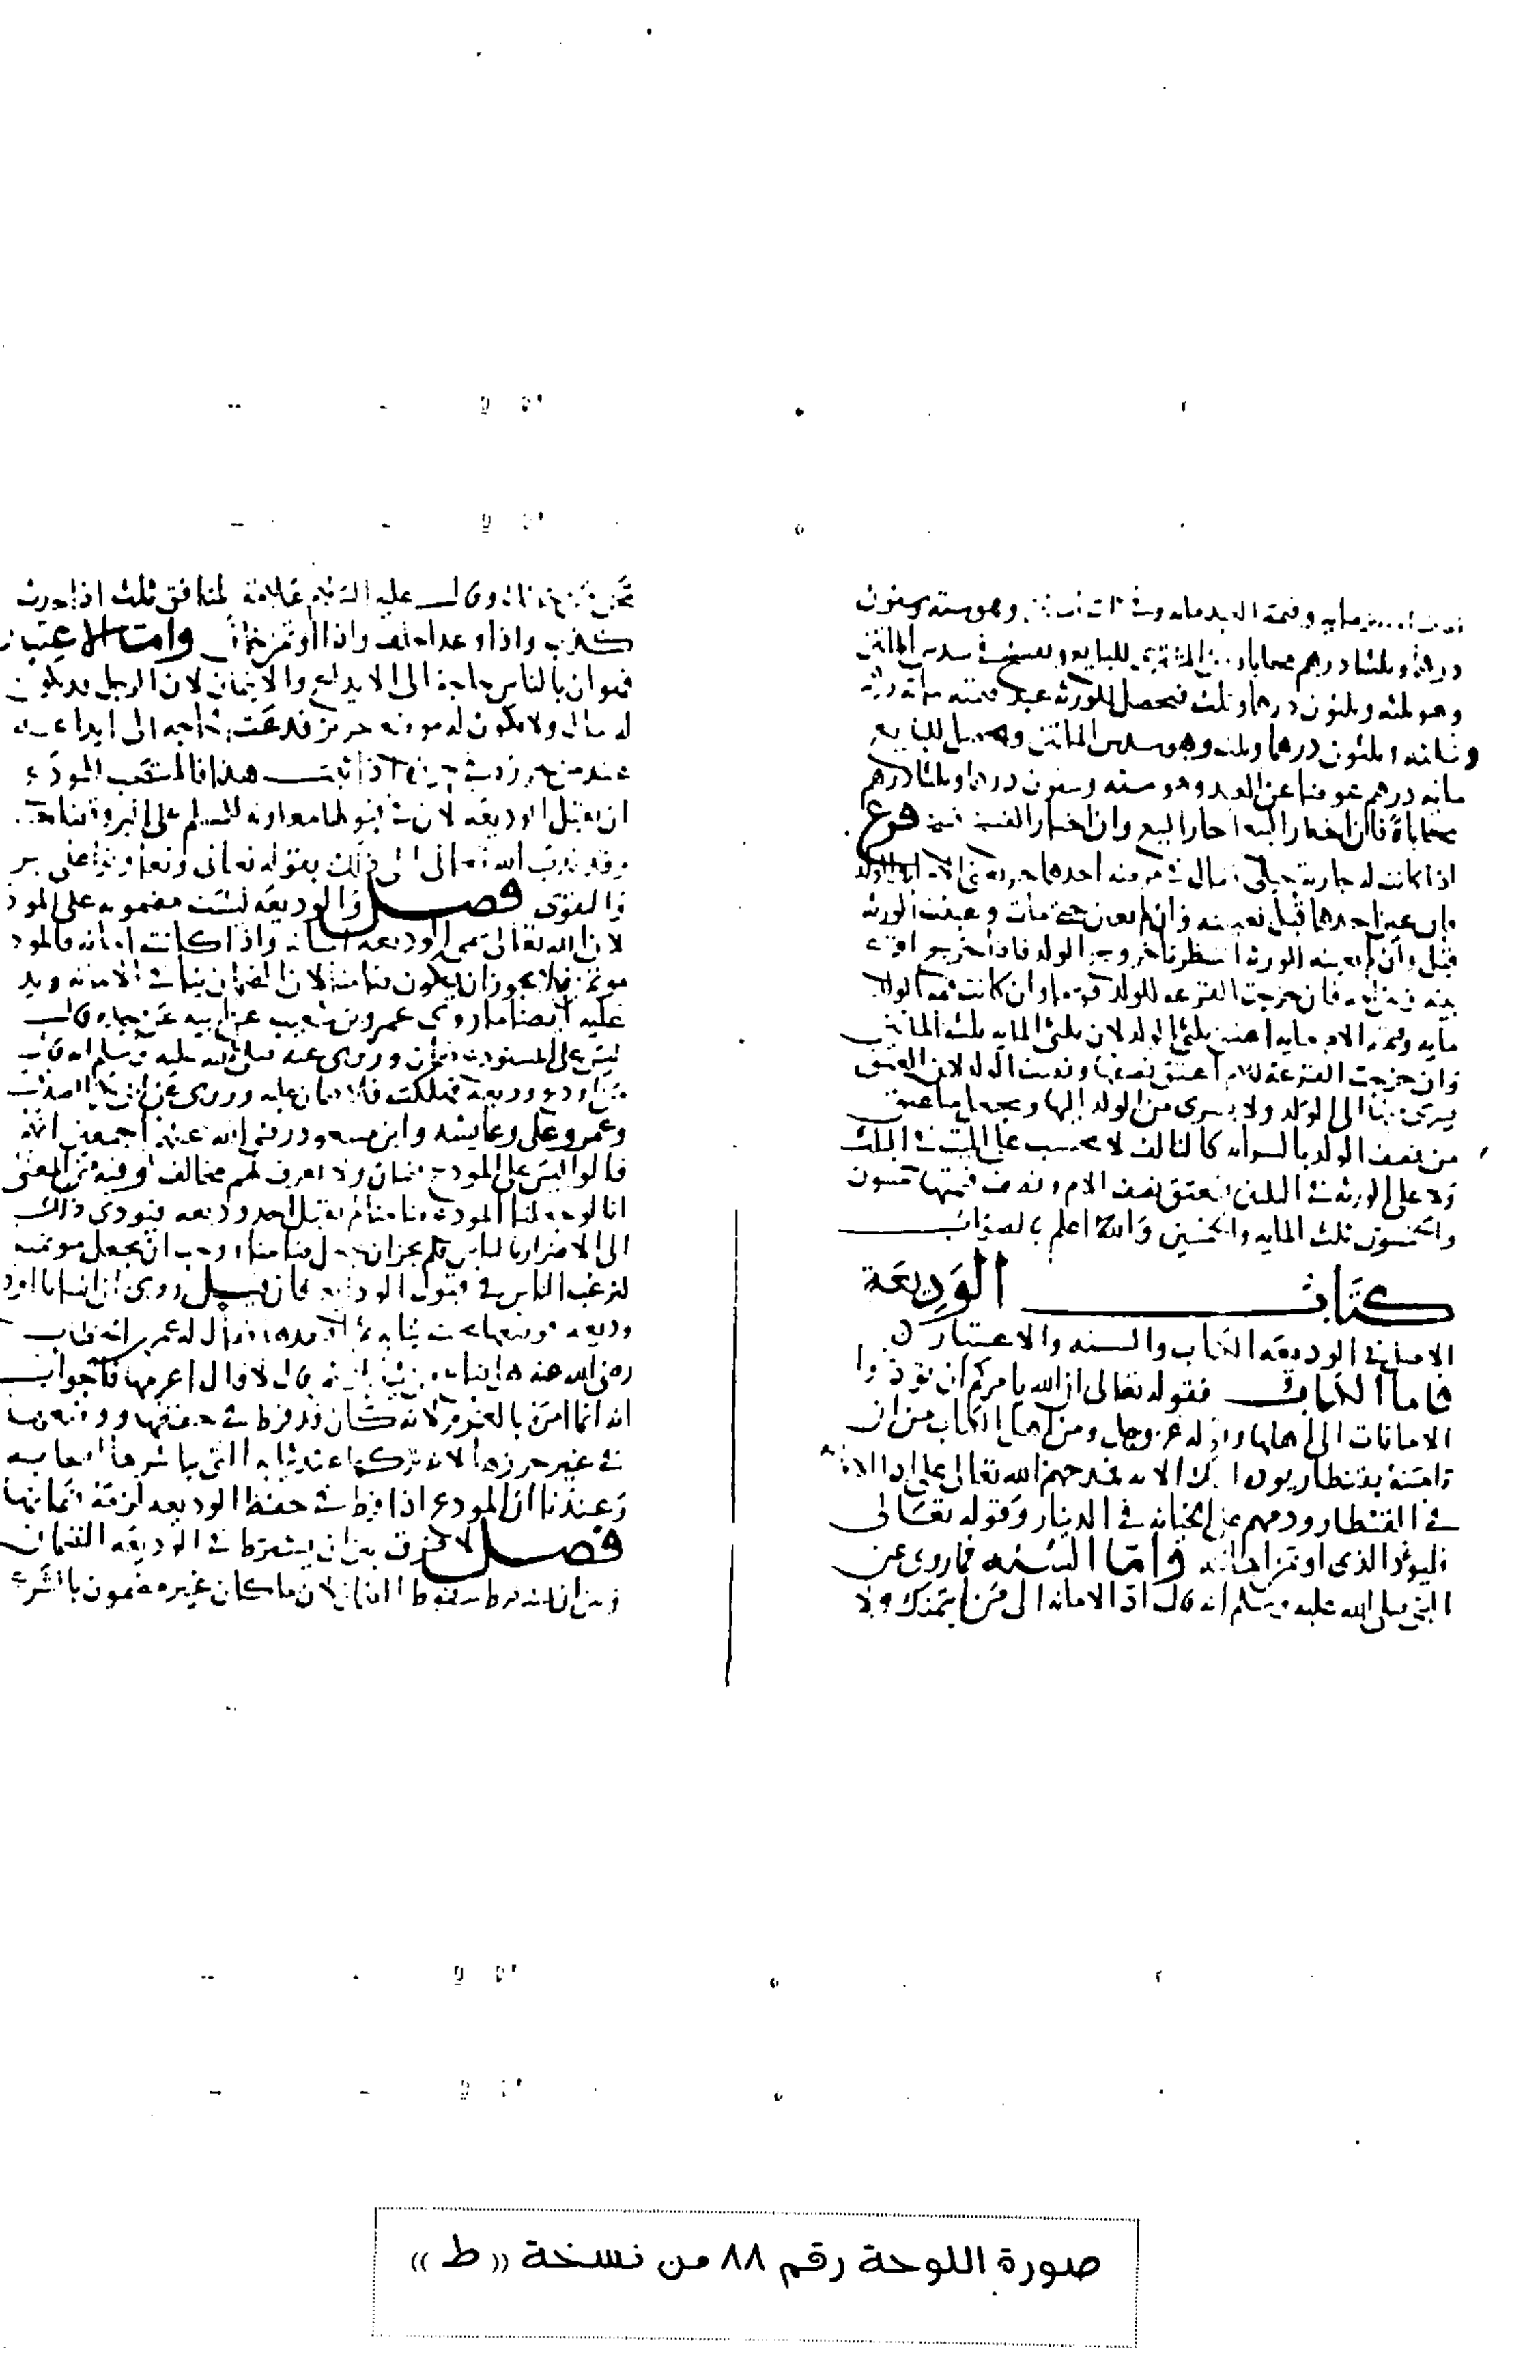 وقيمة العبد مايه وهو سته وستون
درهما وثلثا درهم محاباه للبايع فى سدس المائتين
وهو ثلثه وثلثون درهما وثلث فيحصل للورثه عبد قيمته
وثلثه وثلثون درهما وثلث وهو سدس المائتين ويحصل للبايع
مايه درهم عوضا عن العبد وهو سته وستون درهما وثلثا درهم
محاباة فان اختار البيع وان اختار الفسخ فسخ فرع
اذا كانت له جارية حبلى فقال فى مرضه احدهما حر يعنى الام او الولد
فان عين احدهما قبل تعيينه وان لم يعين حتى مات وعينت الورثه
قبل وان لم يعينه الورثه انتظرنا خروج الولد فاذا خرج اقرع
بينه وبين امه فان خرجت القرعه للولد قوم وان كانت قيمة الولد
مايه وقيمة الام مايه اعتق ثلثى الولد لان ثلثى المايه ثلث المائتين
وان خرجت القرعة للام اعتق نصفها ونصف الولد لان العتق
يسرى منها الى الولد ولا يسرى من الولد اليها ويجعل ما عتق
من نصف الولد بالسرايه كالتالف لا يحسب على الميت فى الثلث
ولا على الورثه فى الثلثين فيعتق نصف الام ونصف قيمتها خمسون
والخمسون ثلث المايه والخمسين والله اعلم بالصواب
كتاب الوديعة
الاصل فى الوديعه الكتاب والسنه والاعتبار
فاما الكتاب فقوله تعالى ان الله يامركم ان تودوا
الامانات الى اهلها وقوله عز وجل ومن اهل الكتاب من ان
تامنه بقنطار يوده اليك الايه فمدحهم الله تعالى على اداء الامانه
فى القنطار وذمهم على الخيانه فى الدينار وقوله تعالى
فليود الذى اوتمن امانته واما السنه فما روى عن
النبى صلى الله عليه وسلم انه قال اد الامانه الى من ائتمنك ولا
تخن من خانك وقال عليه السلام علامة المنافق ثلث اذا حدث
كذب واذا وعد اخلف واذا اوتمن خان واما الاعتبار
فهو ان بالناس حاجة الى الايداع والايتمان لان الرجل قد يكون
له مال ولا يكون له موضع حريز فدعت الحاجه الى ايداعه
عند من يحرزه فى حرزه اذا ثبت هذا فالمستحب للمودع
ان يقبل الوديعه لان فى قبولها معاونه للمسلم على البر
وقد ندب الله تعالى الى ذلك بقوله تعالى وتعاونوا على البر
والتقوى فصل والوديعه ليست مضمونه على المودع
لان الله تعالى سمى الوديعه امانه واذا كانت امانه فالمودع
موتمن فلا يجوز ان يكون ضامنا لان الضمان ينافى الامانه ويدل
عليه ايضا ما روى عمرو بن شعيب عن ابيه عن جده قال
ليس على المستودع ضمان وروى عنه صلى الله عليه وسلم انه قال
من اودع وديعه فهلكت فلا ضمان عليه وروى عن ابى بكر الصديق
وعمر وعلى وعايشه وابن مسعود رضى الله عنهم اجمعين انهم
قالوا ليس على المودع ضمان ولا يعرف لهم مخالف وفيه من المعنى
انا لو جعلنا المودع ضامنا لم يقبل احد وديعه فيودى ذلك
الى الاضرار بالناس فلم يجز ان نجعل ضامنا ووجب ان يجعل موتمنا
لترغب الناس فى قبول الودايع فان قيل روى ان انسا اودع
وديعه فوضعها تحت ثيابه فقال له عمر بن الخطاب
رضى الله عنه قال لا قال اغرمها فالجواب
انه انما امره بالغرم لانه كان قد فرط فى حفظها ووضعها
فى غير حرزها لانه تركها عند ثيابه التى
وعندنا ان المودع اذا فرط فى حفظ الوديعه لزمه ضمانها
فصل لا فرق بين ان يشترط فى الوديعه الضمان
وبين ان يشترط سقوط الضمان لان ما كان غير مضمون بالشرع
صورة اللوحة رقم ٨٨ من نسخة «ط»